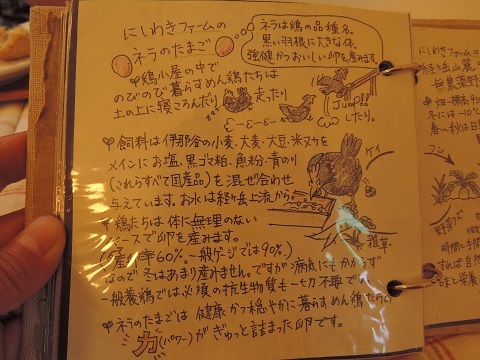 にしわきファームの
ネラのたまご
ネラは鶏の品種名。
黒い羽根に大きな体。
強健かつおいしい卵を産みます。
鶏小屋の中で
のびのび暮らすめん鶏たちは
土の上に寝ころんだり
走ったり
Jump!!
したり。
飼料は伊那谷の小麦、大麦・大豆・米ヌカを
メインにお塩、黒ゴマ粕、魚粉、青のり
(これらすべて国産品)を混ぜ合わせ
与えています。お水は経ヶ岳上流から。
ケイ
鶏たちは体に無理のない
ペースで卵を産みます。
(産卵率60%。一般ゲージでは90%。)
なので冬はあまり産みません。ですが病気にもかからず
一般養鶏では必須の抗生物質も一切不要
ネラのたまごは健康かつ穏やかに暮らすめん鶏たちの
力(パワー)がぎゅっと詰まった卵です。
にしわきファームの
フン